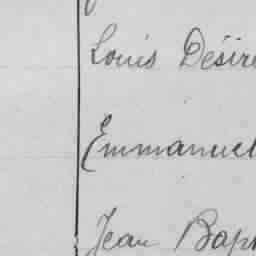 Louis Désiré
Emmanuel
Jean Bap